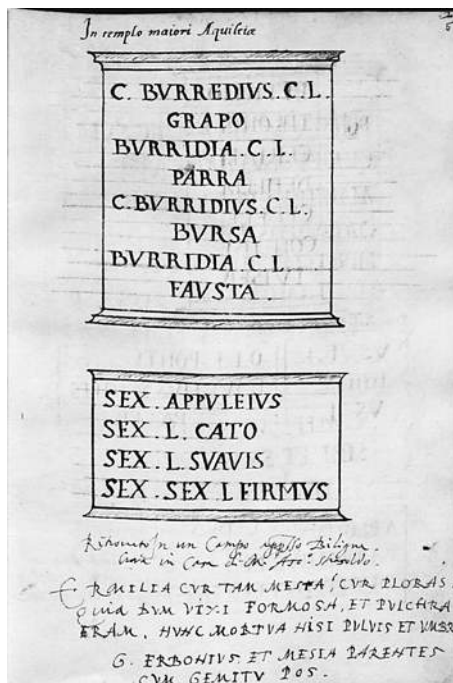 In templo maiori Aquileiæ
C. BVRREDIVS. C. L.
GRAPO
BVRRIDIA. C. L.
PARRA
C. BVRRIDIVS. C. L.
BVRSA
BVRRIDIA. C. L.
FAUSTA.
SEX. APPVLEIVS
SEX. L. CATO
SEX. L. SVAVIS
SEX. SEX. L FIRMVS
Ritrovato In un Campo
in Casa
ERMILIA CVR TAM MESTA? CVR PLORAS
Quia DVM VIXI FORMOSA, ET PVLCHRA
ERAM. NVNC MORTVA NISI PVLVIS ET VMBR
G. ERBONIVS. ET MESIA PARENTES
CVM GEMITV POS.